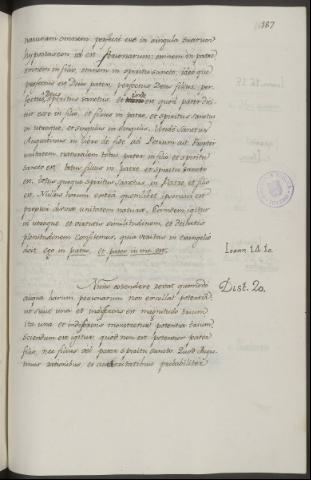 187
naturam omnem perfecte esse in singula trium
hypostaseon id est personarum; omnem in patre
omnem in filio, omnem in spiritu sancto; ideo que
perfectus est Deus pater, perfectus Deus filius, per-
fectus Deus spiritus sanctus. et inde est quod pater dici-
tur esse in filio, et filius in patre, et spiritus sanctus
in utroque, et singulus in singulis. Unde Sanctus
Augustinus in libro de fide ad Petrum ait. Propter
unitatem naturalem totus pater in filio et spiritu
sancto est totus filius in patre et spiritu sancto
est, totus quoque spiritus sanctus in Patre et filio
est. Nullus horum extra quemlibet ipsorum est
propter divinae unitatem naturae. Eorundem igitur
in utroque et
similitudinem et deitatis
plenitudinem confitemur, quia veritas in evangelio
dicit ego in patre, et pater in me est.
Joann. 14. 10.
Dist. 20.
Nunc ostendere restat quomodo
aliqua harum personarum non excellat potentia,
ut sicut una et indifferens est magnitudo trium
ita una et indifferens monstretur potentia trium.
Sciendum est igitur quod non est potentior pater
filio, nec filius vel pater spiritu sancto. Quod Augus-
tinus rationibus, et auctoritatibus probabiliter